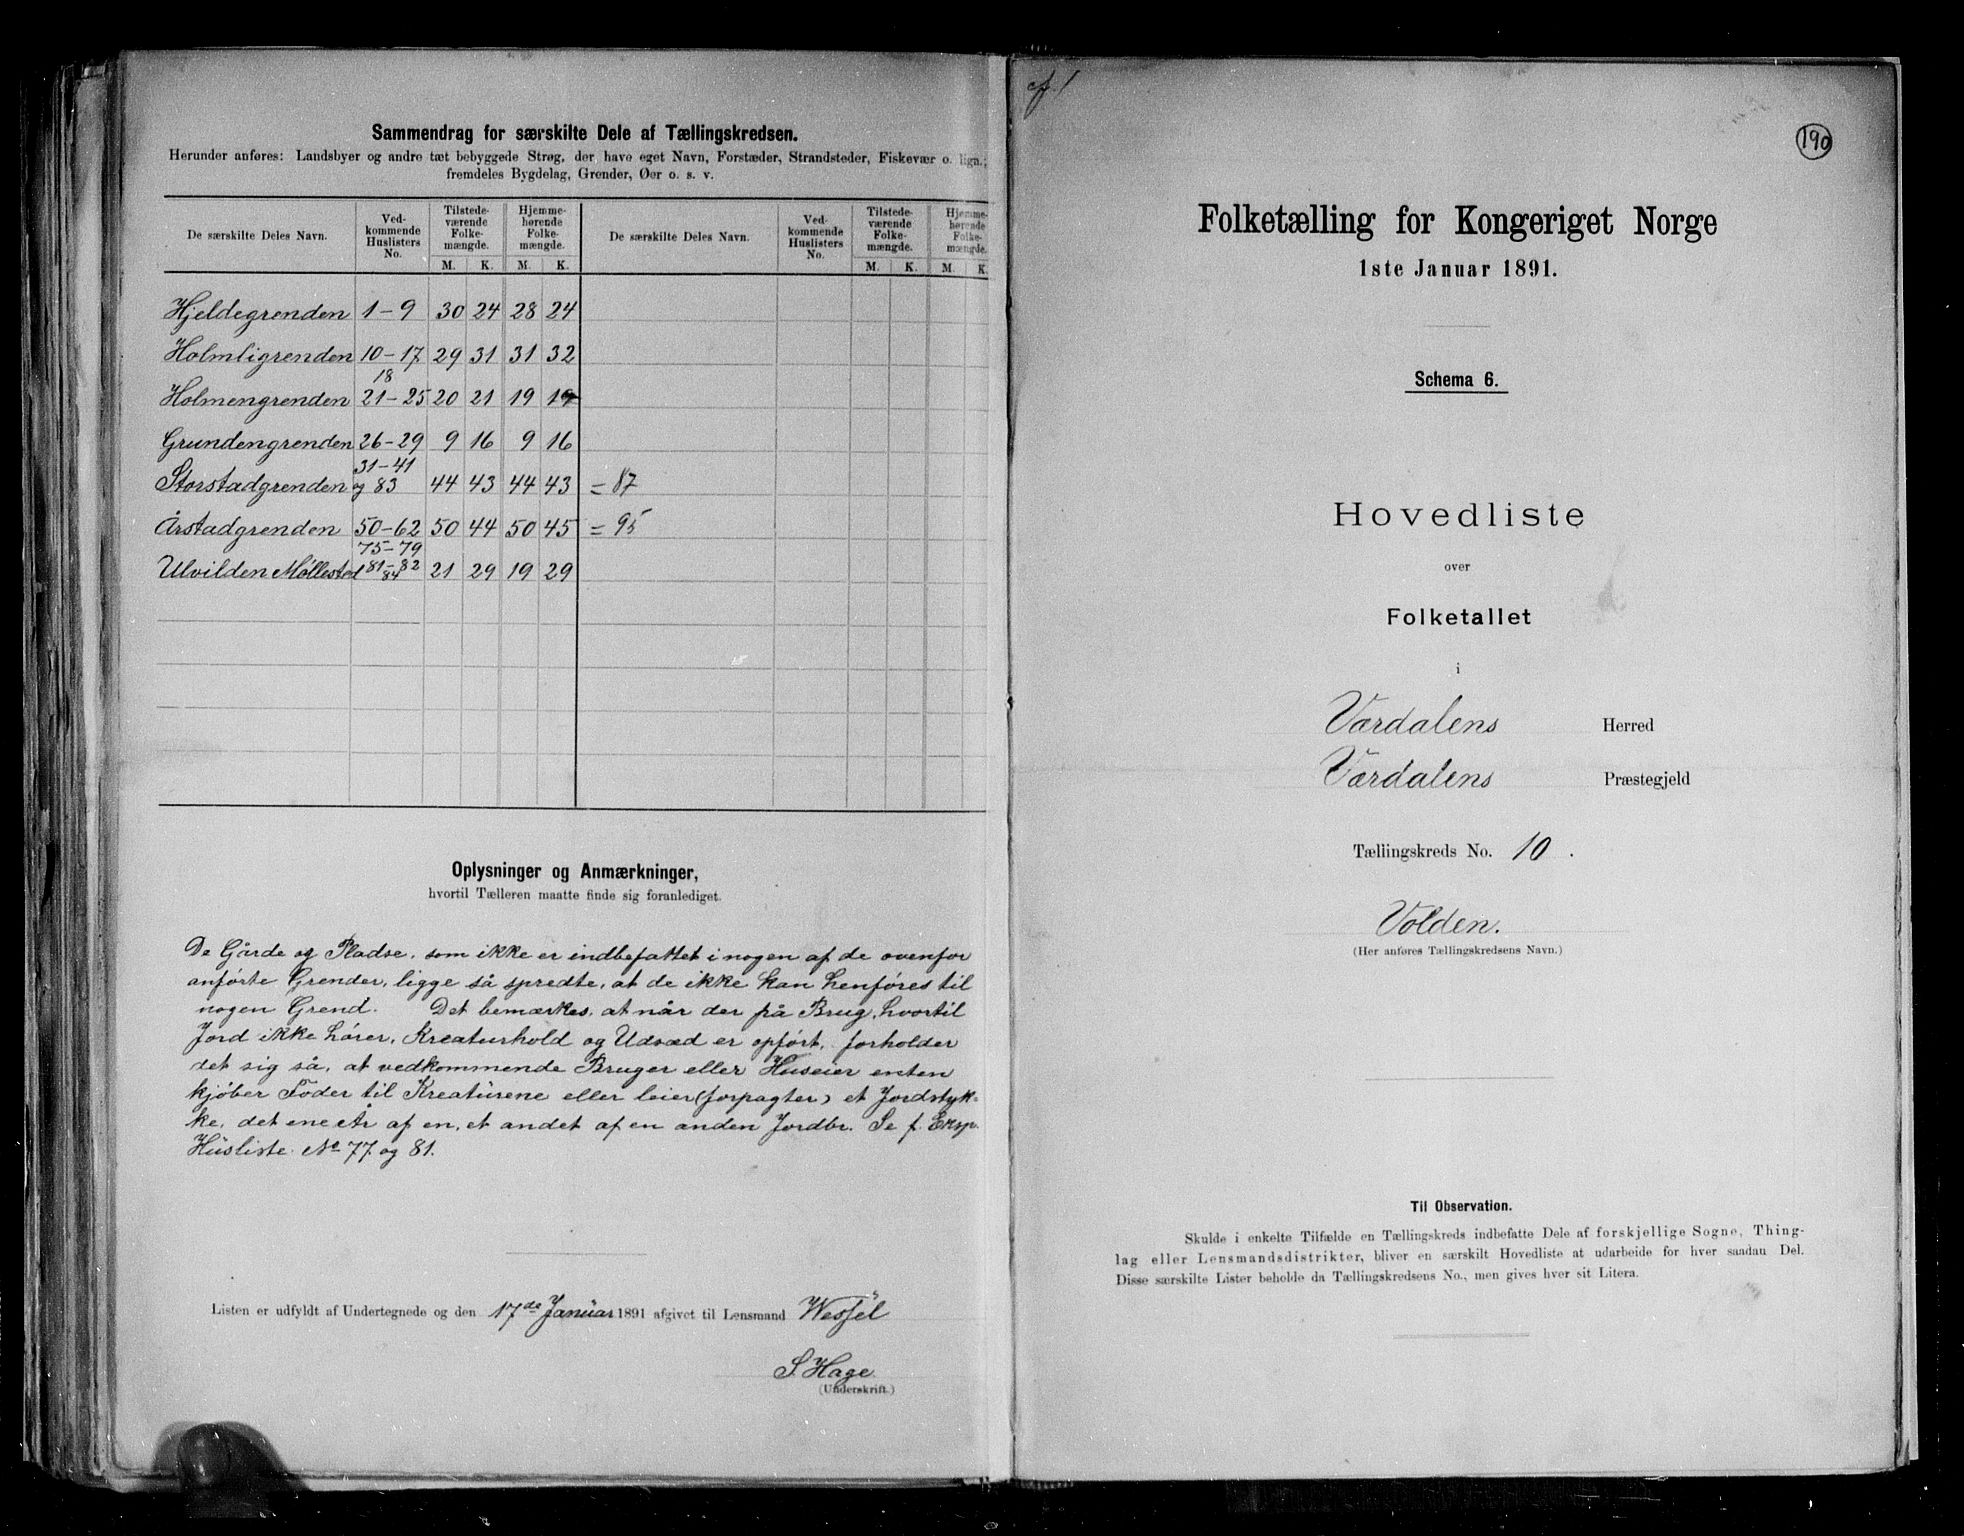 Sammendrag for særskilte Dele af Tællingskredsen.
Herunder anføres: Landsbyer og andre tæt bebyggede Strøg, der have eget Navn, Forstæder, Strandsteder, Fiskevær o. lign.;
fremdeles Bygdelag, Grender, Øer o. s. v.
De særskilte Deles Navn. Ved-kommende Huslisters No. Tilstede-værende Folke-mængde. Hjemme-hørende Folke-mængde. De særskilte Deles Navn. Ved-kommende Huslisters No. Tilstede-værende Folke-mængde. Hjemme-hørende Folke-mængde.
M. K. M. K. M. K. M. K.
Hjeldegrenden 1-9 30 24 28 24
Holmligrenden 10-17 29 31 31 32
18
Holmengrenden 21-25 20 21 19 19
Grundengrenden 26-29 9 16 9 16
31-41
Storstadgrenden og 83 44 43 44 43 = 87
Årstadgrenden 50-62 50 44 50 45 = 95
75-79
Ulvilden Møllested 81-82 84 21 29 19 29
Oplysninger og Anmærkninger,
hvortil Tælleren maatte finde sig foranlediget.
De Gårde og Pladse, som ikke er indbefattet i nogen af de ovenfor
anførte Grender, ligge så spredte, at de ikke kan henføres til
nogen Grend. Det bemærkes, at når der på Brug, hvortil
Jord ikke hører, Kreaturhold og Udsæd er opført, forholder
det sig så, at vedkommende Bruger eller Huseier enten
kjøber Foder til Kreaturene eller leier (forpagter) et Jordstyk-
ke, det ene År af en, et andet af en anden Jordbr. Se f. Eksp.
Husliste No 77 og 81.
Listen er udfyldt af Undertegnede og den 17de Januar 1891 afgivet til Lensmand Wessel
S. Hage
(Underskrift.)
cf. 1
190
Folketælling for Kongeriget Norge
1ste Januar 1891.
Schema 6.
Hovedliste
over
Folketallet
i
Værdalens Herred
Værdalens Præstegjeld
Tællingskreds No. 10.
Volden.
(Her anføres Tællingskredsens Navn.)
Til Observation.
Skulde i enkelte Tilfælde en Tællingskreds indbefatte Dele af forskjellige Sogne, Thing-
lag eller Lensmandsdistrikter, bliver en særskilt Hovedliste at udarbeide for hver saadan Del.
Disse særskilte Lister beholde da Tællingskredsens No., men gives hver sit Litera.